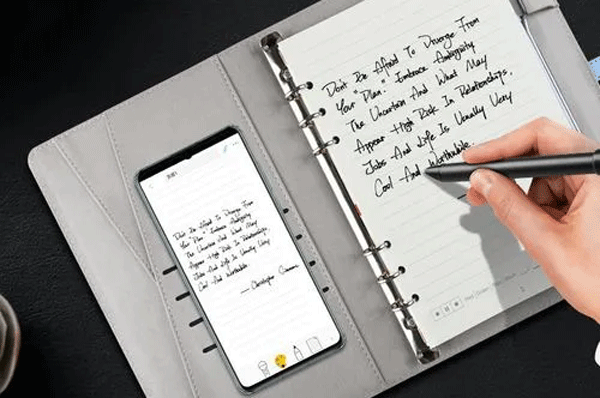 Don't Be Afraid To Diverge From
Your "Plan". Embrace Ambiguity
The Uncertain And What May
Appear High Risk In Relationships,
Jobs And Life Is Usually Very
Cool And Worthwhile
Don't Be Afraid To Diverge From
Your "Plan". Embrace Ambiguity
The Uncertain And What May
Appear High Risk In Relationships,
Jobs And Life Is Usually Very
Cool And Worthwhile
— Christopher